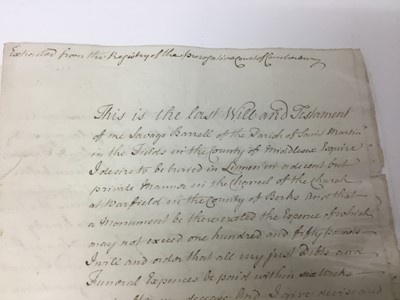 Extracted from the Registry of the Prerogative Court of Canterbury
This is the last Will and Testament
of me Savage Barrell of the Parish of Saint Martin
in the Fields in the County of Middlesex Esquire
I desire to be buried in Linnen in a decent but
private Manner in the Chancel of the Church
at Warfield in the County of Berks And that
a Monument be there erected the Expence of which
may not exceed one hundred and fifty pounds
I will and order that all my just Debts and
Funeral Expences be paid within six
my decease And I give devise and